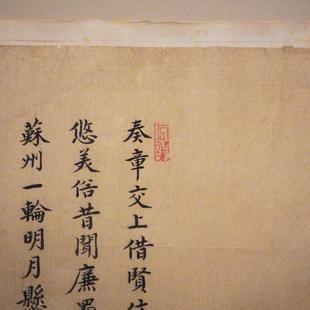 奏章交上借賢
悠美俗昔聞廉
蘇州一輪明月懸